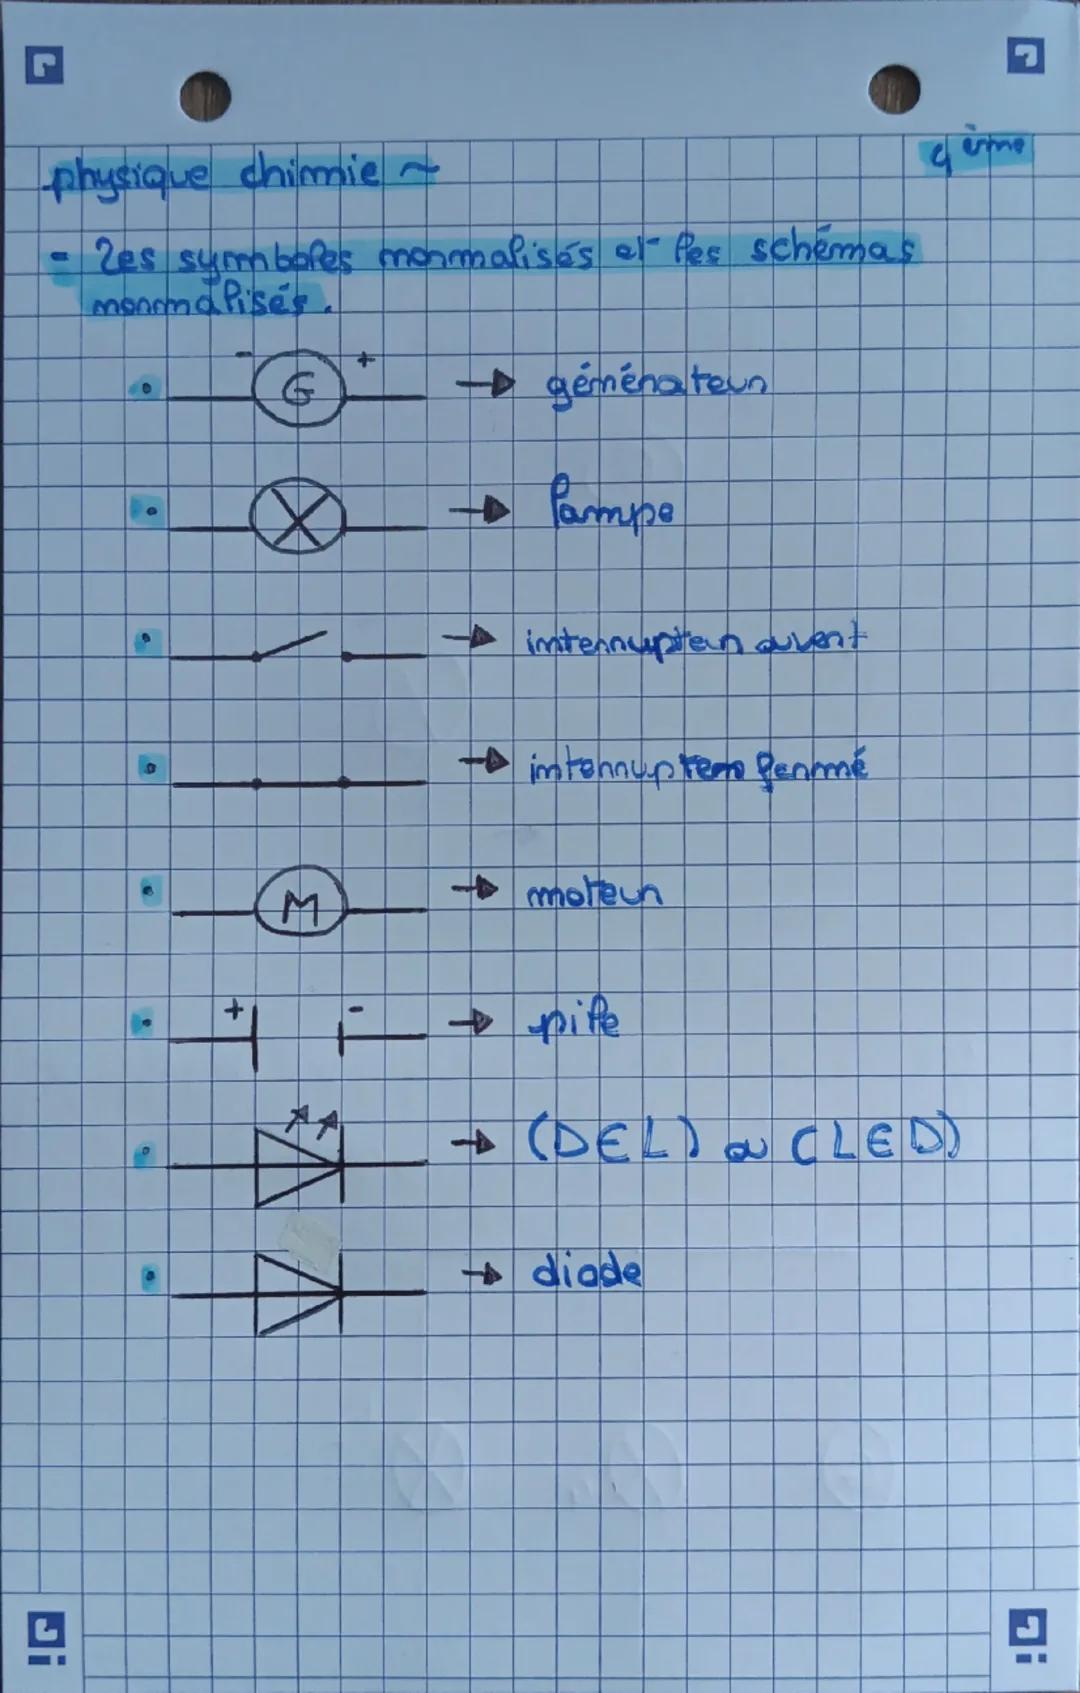 physique chimie ~
4ème
- Les symboles normalisés et les schémas
normalisés.
- G + → générateur
→ lampe
→ interrupteur ouvert
→ interrupteur fermé
M → moteur
+ - → pile
→ (DEL) ou (LED)
→ diode